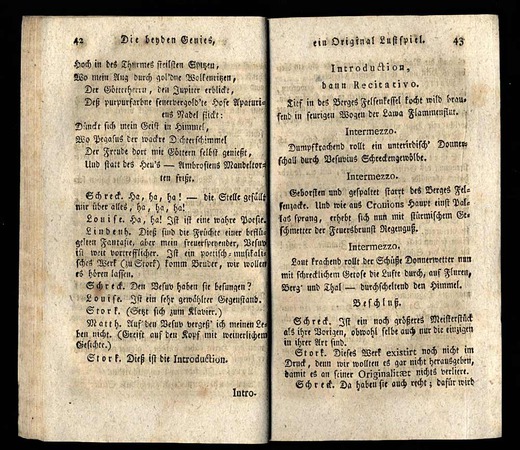 42 Die beyden Genies,
Hoch in des Thurmes steilsten Spitzen,
Wo mein Aug durch gol'dne Wolkenritzen,
Der Götterherrn, den Jupiter erblickt,
Deß purpurfarbne feuerbergold'te Hose Apaturi-
ens Nadel flickt:
Dünckt sich mein Geist im Himmel,
Wo Pegasus der wackre Dichterschimmel
Der Freude dort mit Göttern selbst genießt,
Und statt des Heu's — Ambrosiens Mandeltor-
ten frißt.
Schreck. Ha, ha, ha! — die Stelle gefällt
mir über alles, ha, ha, ha!
Louise. Ha, ha! Ist ist eine wahre Poesie.
Lindenh. Dieß sind die Früchte einer beflü-
gelten Fantasie, aber mein feuerspeyender, Vesuv
ist weit vortrefflicher. Ist ein poetisch-musikali-
sches Werk (zu Stork) komm Bruder, wir wollen
es hören lassen.
Schreck. Den Vesuv haben sie besungen?
Louise. Ist ein sehr gewählter Gegenstand.
Stork. (Setzt sich zum Klavier.)
Matth. Auf den Vesuv vergeß' ich meinen Le-
ben nicht. (Greift auf den Kopf mit weinerlichem
Gesichte.)
Stork. Dieß ist die Introduction.
Intro-
ein Original Lustspiel. 43
Introduction,
dann Recitativo.
Tief in des Berges Felsenkessel kocht wild brau-
send in feurigen Wogen der Lawa Flammenflut.
Intermezzo.
Dumpfkrachend rollt ein unterirdisch' Donner-
schall durch Vesuvius Schreckengewölbe.
Intermezzo.
Geborsten und gespaltet starrt des Berges Fel-
senzacke. Und wie aus Cronions Haupt einst Pal-
las sprang, erhebt sich nun mit stürmischem Ge-
schmetter der Feuersbrunst Regenguß.
Intermezzo.
Laut krachend rollt der Schüße Donnerwetter nun
mit schrecklichem Getose die Lufte durch, auf Fluren,
Berg' und Thal — durchscheltend den Himmel.
Beschluß.
Schreck. Ist ein noch größeres Meisterstück
als ihre Vorigen, obwohl selbe auch nur die einzigen
in ihrer Art sind.
Stork. Dieses Werk existirt noch nicht im
Druck, denn wir wollten es gar nicht herausgeben,
damit es an seiner Originalitær nichts verliere.
Schreck. Da haben sie auch recht; dafür wird